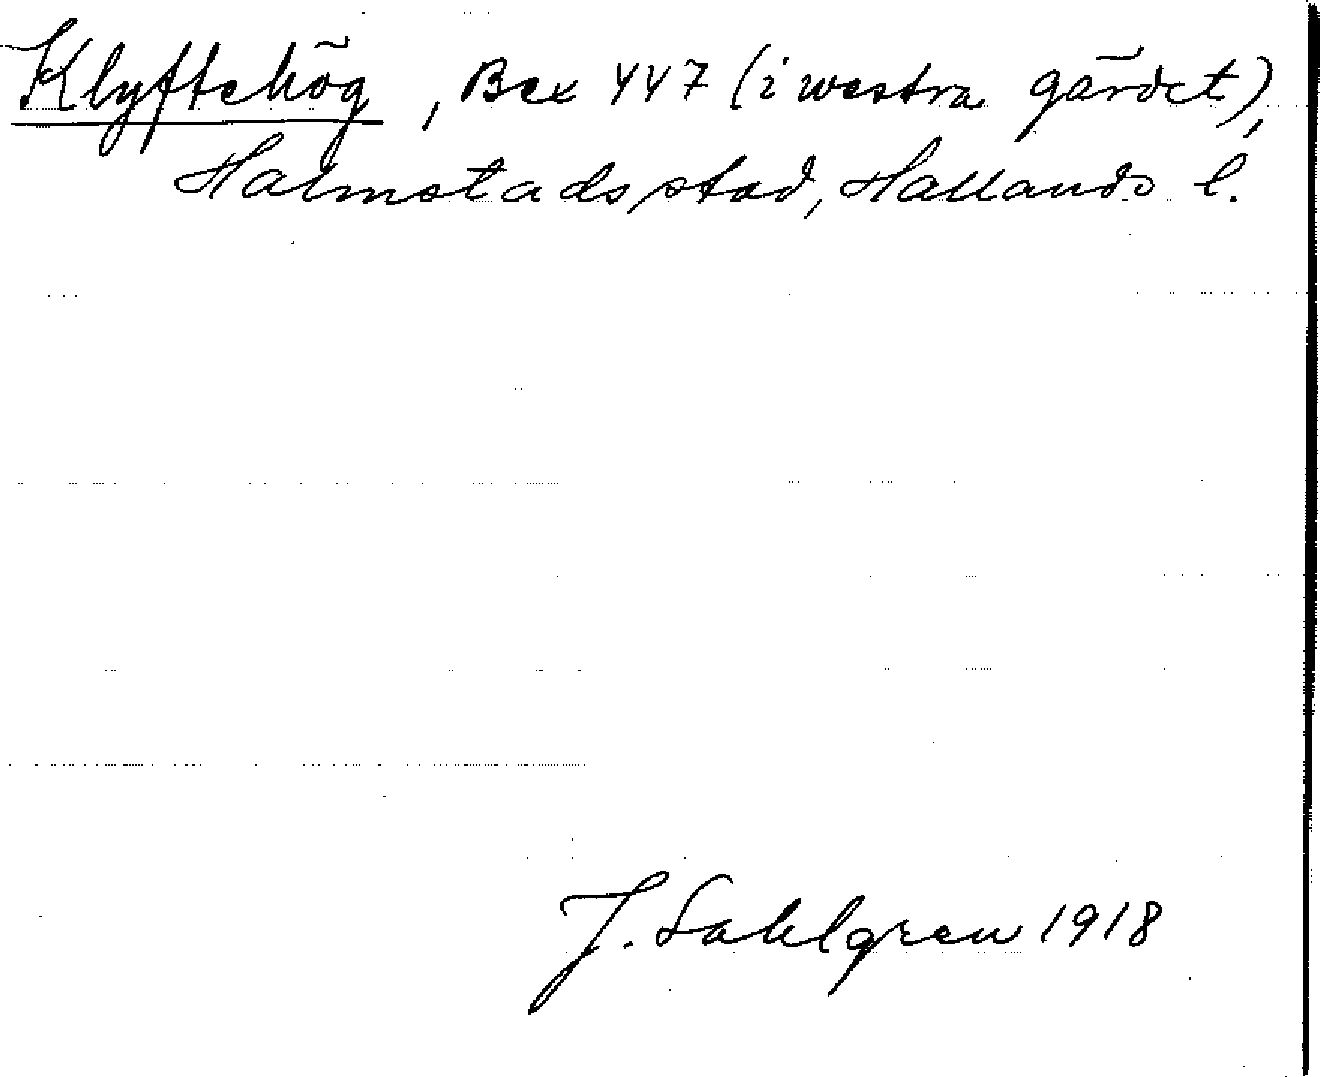 Klyftehög, Bex 447 (i westra gärdet),
Halmstads stad, Hallands l.
J. Sahlgren 1918